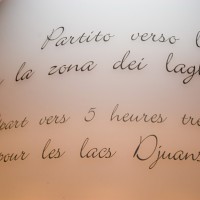 Partito verso l
la zona dei lag
part vers 5 heures tr
pour les lacs Djuans